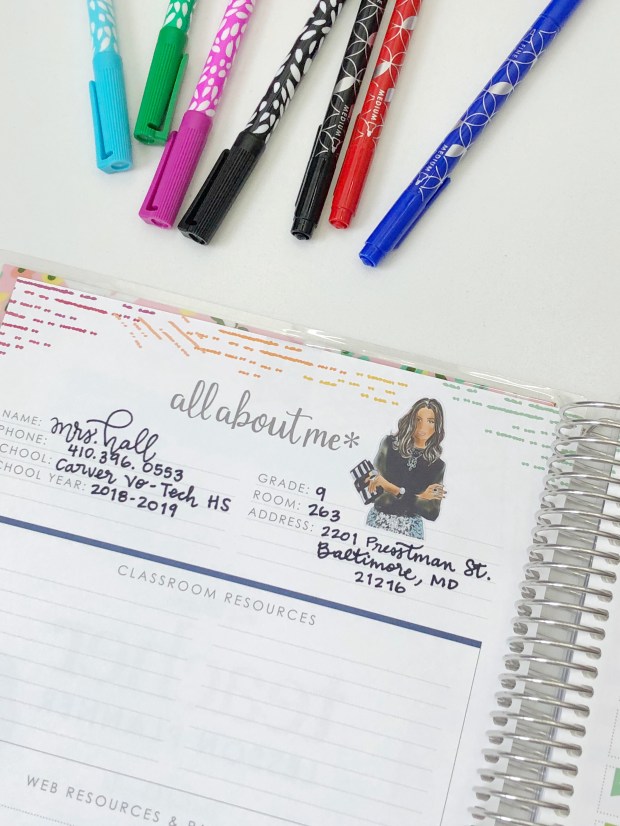 MEDIUM
MEDIUM
FINE
MEDIUM
all about me*
NAME: mrs. hall
PHONE: 410.396.0553
SCHOOL: Carver Vo-Tech HS
SCHOOL YEAR: 2018-2019
GRADE: 9
ROOM: 263
ADDRESS: 2201 Presstman St.
Baltimore, MD
21216
CLASSROOM RESOURCES
WEB RESOURCES &